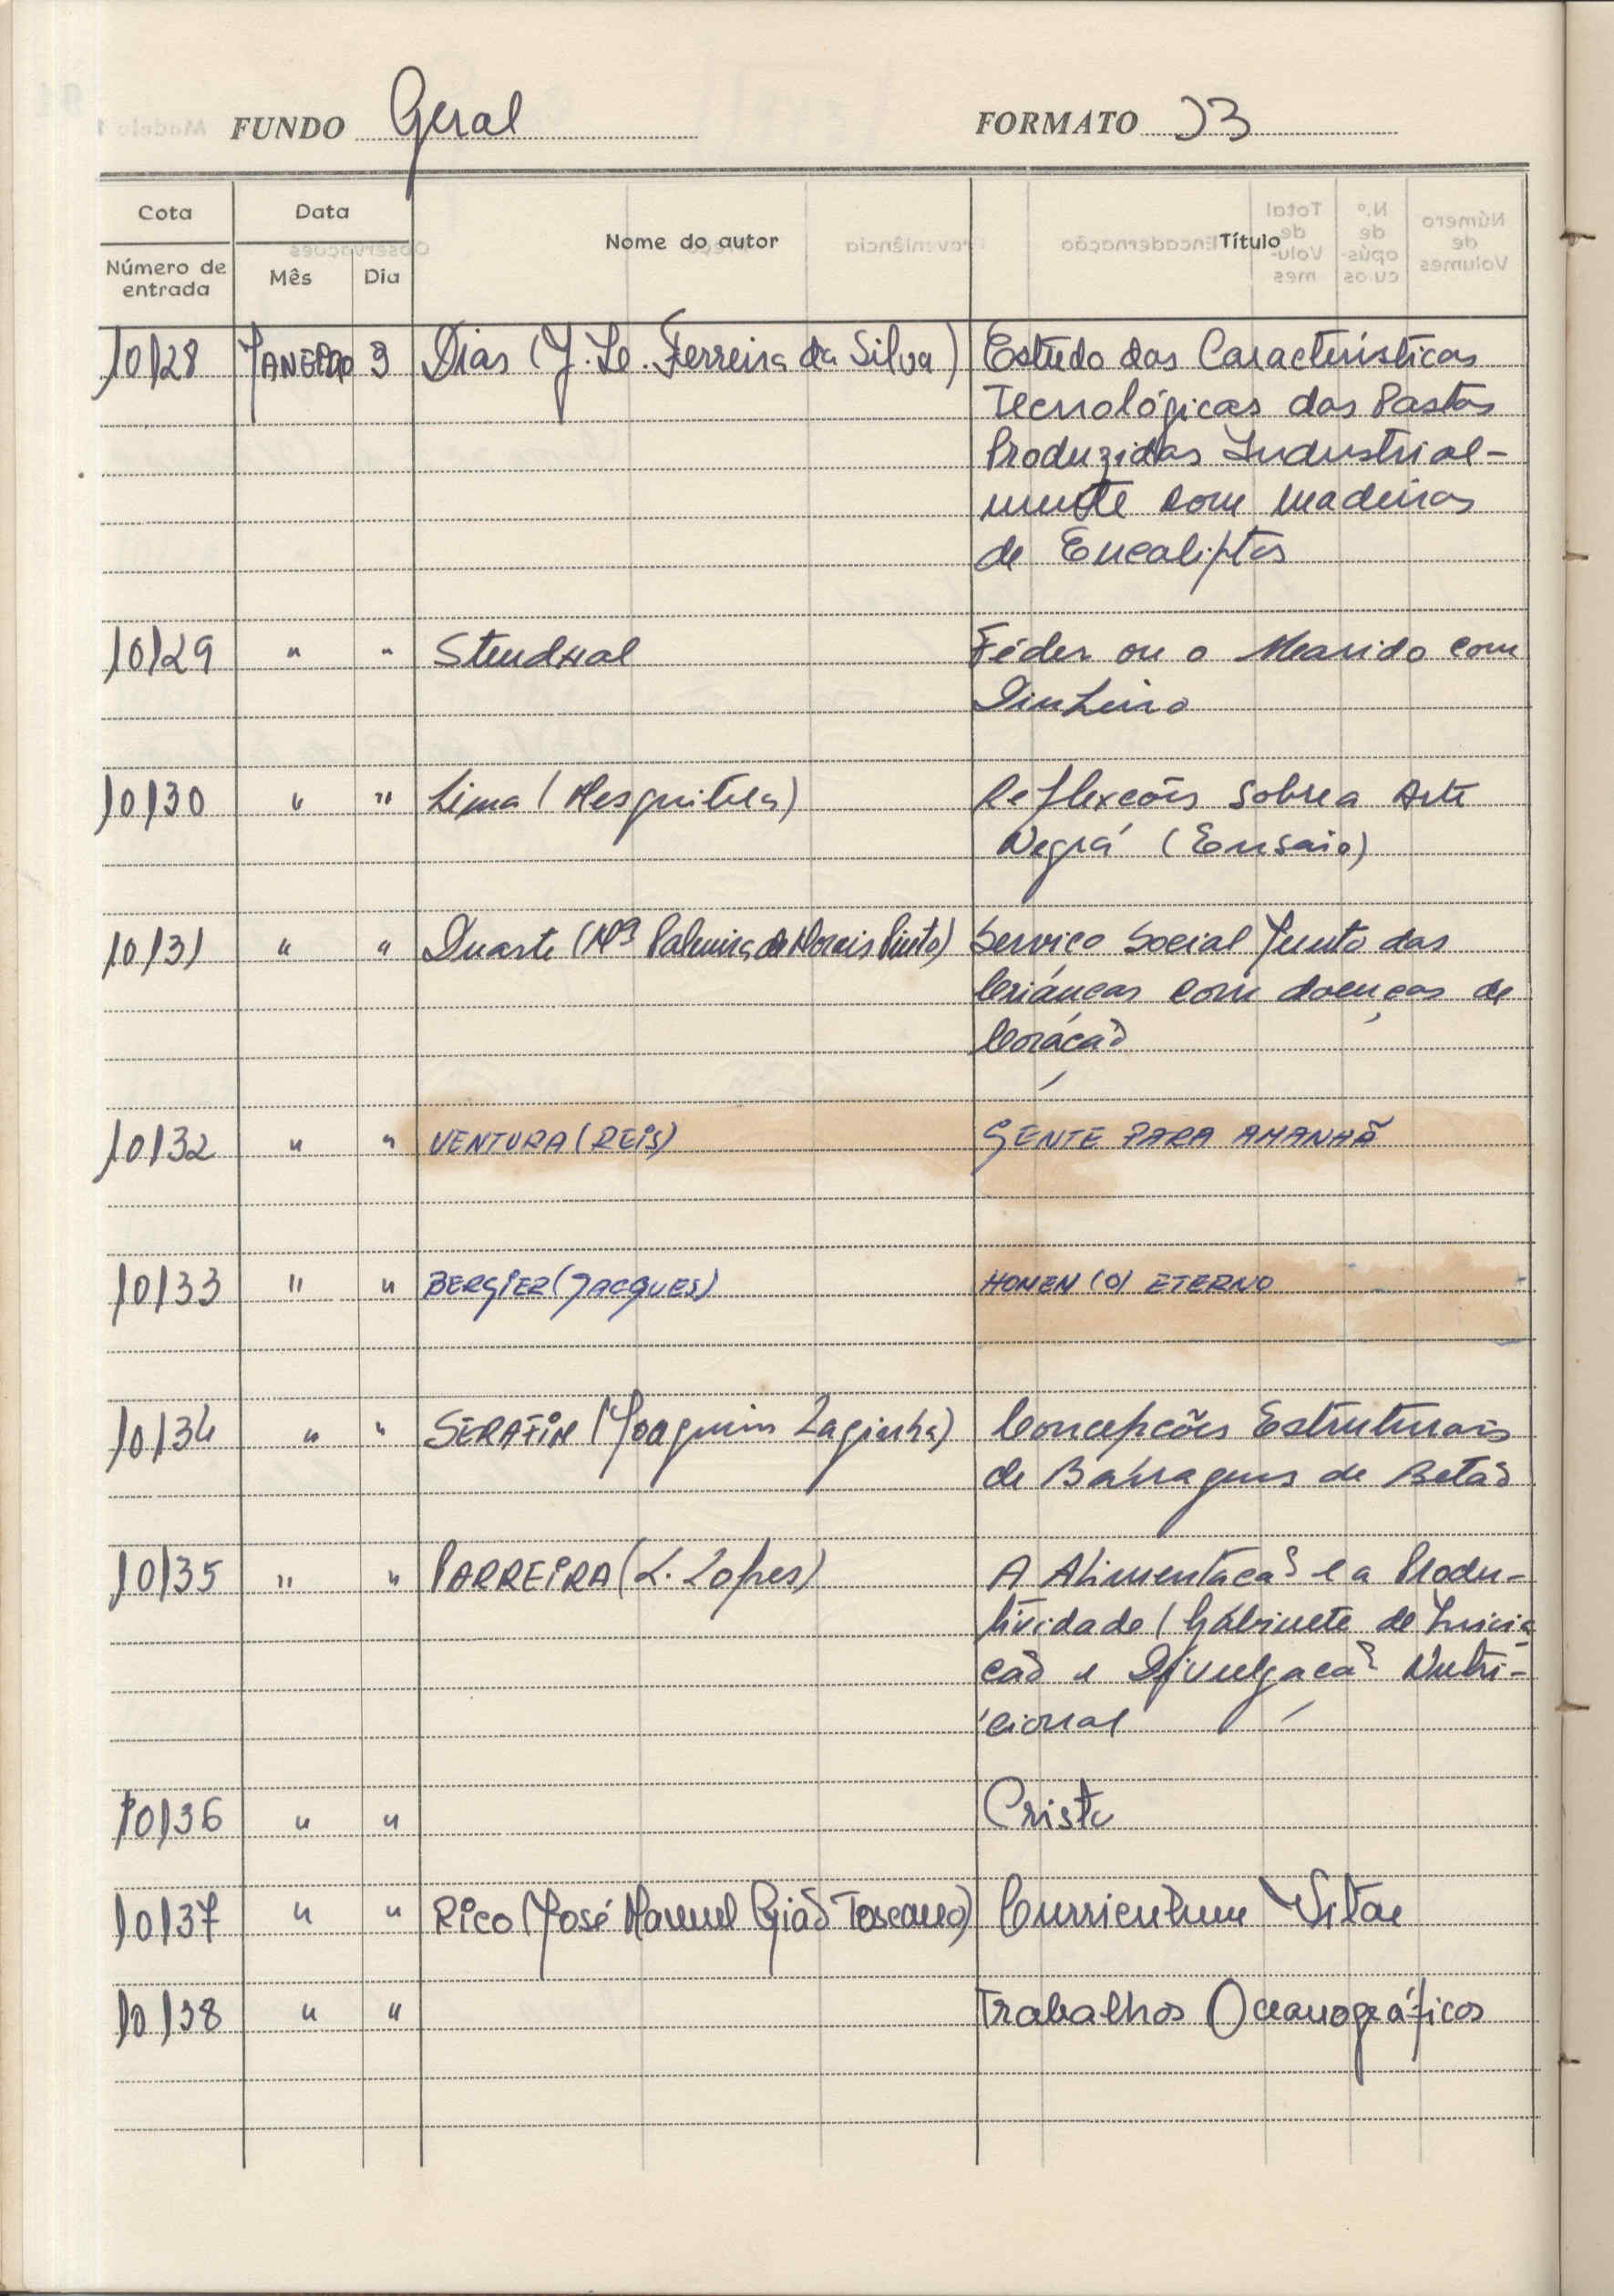 FUNDO Geral FORMATO 33
Cota Data Nome do autor Título
Número de entrada Mês Dia
10128 JANEIRO 3 Dias (J. Le. Ferreira da Silva) Estudo das Características
Tecnológicas das Pastas
Produzidas Industrial-
mente com madeiras
de Eucaliptos
10129 " " Stendhal Féder ou o Marido com
Dinheiro
10130 " " Lima (Mesquitela) Reflexões sobre a Arte
Negra (Ensaio)
10131 " " Duarte (Mª Palmira de Morais Pinto) Serviço Social Junto das
Crianças com doenças de
Coração
10132 " " VENTURA (REIS) GENTE PARA AMANHÃ
10133 " " BERGIER (JACQUES) HOMEN (O) ETERNO
10134 " " SERAFIM (Joaquim Laginha) Concepções Estruturais
de Barragens de Betão
10135 " " PARREIRA (L. Lopes) A Alimentação e a Produ-
tividade (Gabinete de Inicia
ção e Divulgação Nutri-
cional
10136 " " Cristo
10137 " " Rico (José Manuel Gião Toscano) Curriculum Vitae
10138 " " Trabalhos Oceanográficos